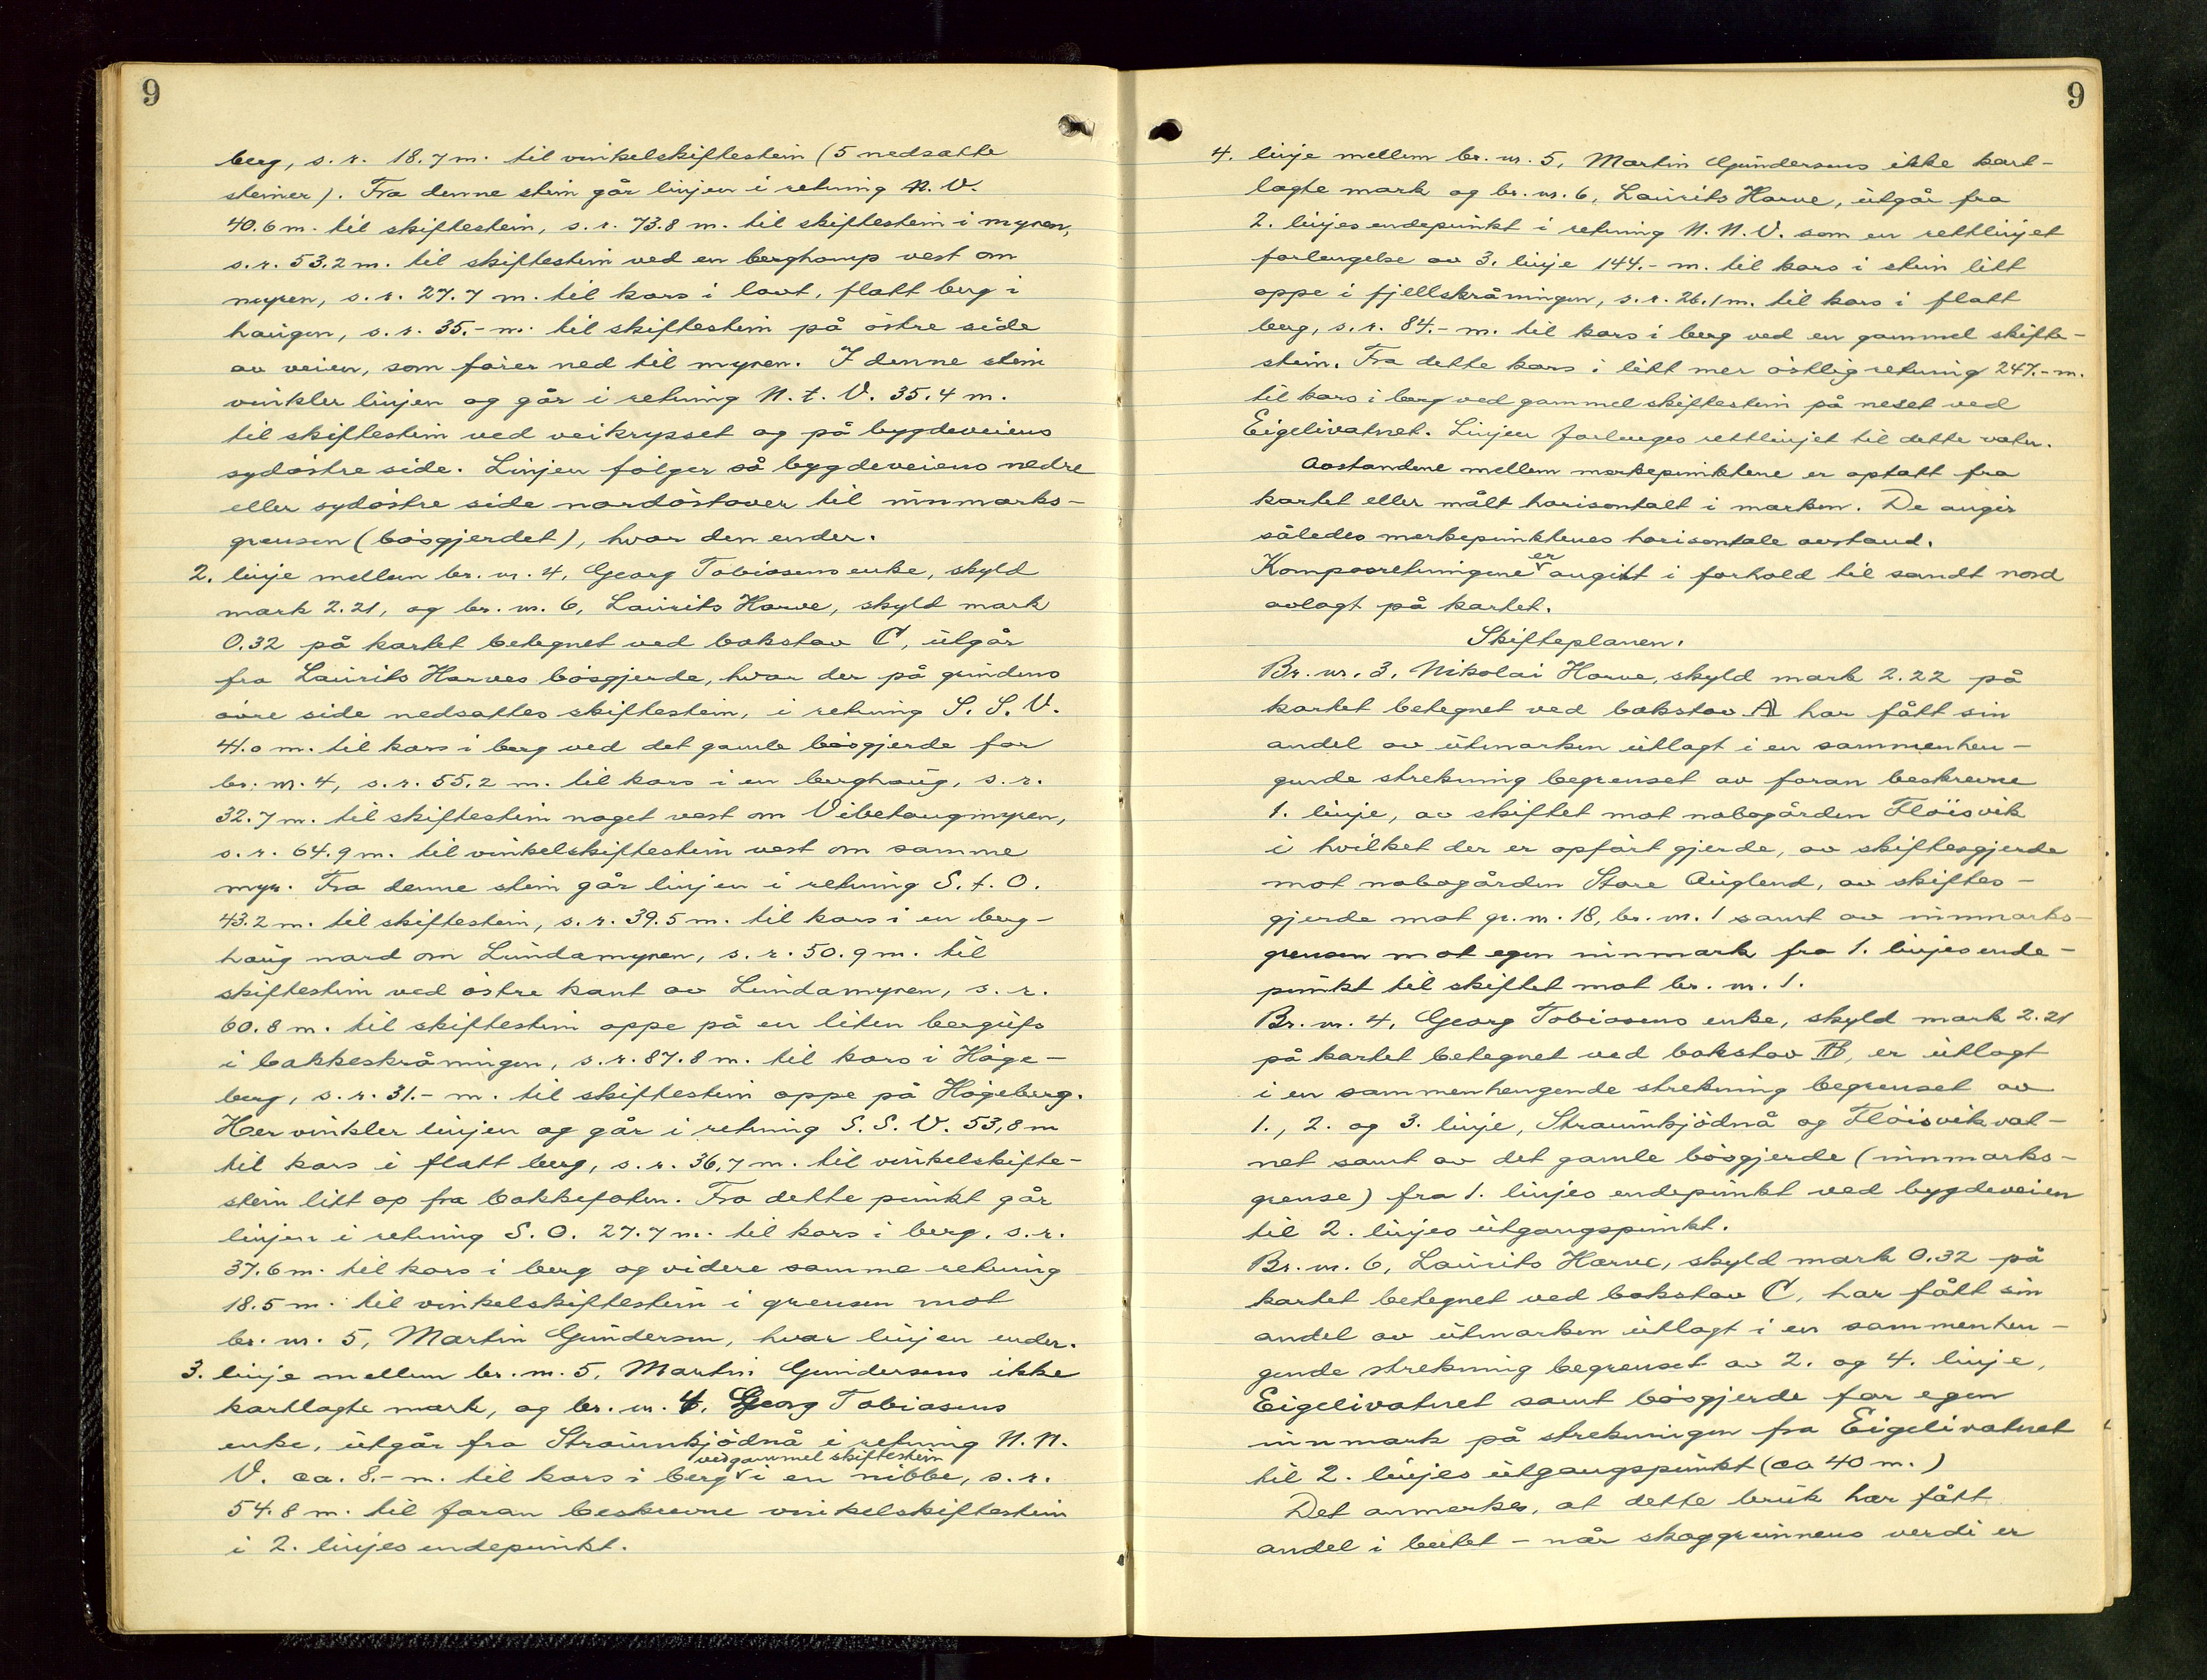 9
berg, s. r. 18.7 m. til vinkelskiftestein (5 nedsatte
steiner). Fra denne stein går linjen i retning N. V.
40.6 m. til skiftestein, s. r. 73.8 m. til skiftestein i myren,
s. r. 53.2 m. til skiftestein ved en berghamp vest om
myren, s. r. 27.7 m. til kors i lavt, flatt berg i
haugen, s. r. 35.- m. til skiftestein på östre side
av veien, som förer ned til myren. I denne stein
vinkler linjen og går i retning N. t. V. 35.4 m.
til skiftestein ved veikrysset og på bygdeveiens
sydöstre side. Linjen fölger så bygdeveiens nedre
eller sydöstre side nordöstover til innmarks-
grensen (bösgjerdet), hvor den ender.
2. linje mellem br. nr. 4, Georg Tobiasens enke, skyld
mark 2.21, og br. nr. 6, Laurits Harve, skyld mark
0.32 på kartet betegnet ved bokstav C, utgår
fra Laurits Harves bösgjerde, hvor der på grindens
övre side nedsattes skiftestein, i retning S. S. V.
41.0 m. til kors i berg ved det gamle bösgjerde for
br. nr. 4, s. r. 55.2 m. til kors i en berghaug, s. r.
32.7 m. til skiftestein noget vest om Vibehaugmyren,
s. r. 64.9 m. til vinkelskiftestein vest om samme
myr. Fra denne stein går linjen i retning S. t. O.
43.2 m. til skiftestein, s. r. 39.5 m. til kors i en berg-
haug nord om Lundamyren, s. r. 50.9 m. til
skiftestein ved östre kant av Lundamyren, s. r.
60.8 m. til skiftestein oppe på en liten bergufs
i bakkeskråningen, s. r. 87.8 m. til kors i Höge-
berg, s. r. 31.- m. til skiftestein oppe på Högeberg.
Her vinkler linjen og går i retning S. S. V. 53,8 m
til kors i flatt berg, s. r. 36,7 m. til vinkelskifte-
stein litt op fra bakkefoten. Fra dette punkt går
linjen i retning S. O. 27.7 m. til kors i berg, s. r.
37.6 m. til kors i berg og videre samme retning
18.5 m. til vinkelskiftestein i grensen mot
br. nr. 5, Martin Gundersen, hvor linjen ender.
3. linje mellem br. nr. 5, Martin Gundersens ikke
kartlagte mark, og br. nr. 4, Georg Tobiasens
enke, utgår fra Straumkjödnå i retning N. N.
ved gammel skiftestein
V. ca. 8.- m. til kors i berg i en nibbe, s. r.
54.8 m. til foran beskrevne vinkelskiftestein
i 2. linjes endepunkt.
9
4. linje mellem br. nr. 5, Martin Gundersens ikke kart-
lagte mark og br. nr. 6, Laurits Harve, utgår fra
2. linjes endepunkt i retning N. N. V. som en rettlinjet
forlengelse av 3. linje 144.- m. til kors i stein litt
oppe i fjellskråningen, s. r. 26.1 m. til kors i flatt
berg, s. r. 84.- m. til kors i berg ved en gammel skifte-
stein. Fra dette kors i litt mer östlig retning 247.- m.
til kors i berg ved gammel skiftestein på neset ved
Eigelivatnet. Linjen forlenges rettlinjet til dette vatn.
Avstandene mellem merkepunktene er optatt fra
kartet eller målt horisontalt i marken. De angir
således merkepunktenes horisontale avstand.
er
Kompasretningene angitt i forhold til sandt nord
avlagt på kartet.
Skifteplanen.
Br. nr. 3, Nikolai Harve, skyld mark 2.22 på
kartet betegnet ved bokstav A har fått sin
andel av utmarken utlagt i en sammenhen-
gende strekning begrenset av foran beskrevne
1. linje, av skiftet mot nabogården Flöisvik
i hvilket der er opfört gjerde, av skiftesgjerde
mot nabogården Store Auglend, av skiftes-
gjerde mot gr. nr. 18, br. nr. 1 samt av innmarks-
grensen mot egen innmark fra 1. linjes ende-
punkt til skiftet mot br. nr. 1.
Br. nr. 4, Georg Tobiasens enke, skyld mark 2.21
på kartet betegnet ved bokstav B, er utlagt
i en sammenhengende strekning begrenset av
1., 2. og 3. linje, Straumkjödnå og Flöisvikvat-
net samt av det gamle bösgjerde (innmarks-
grense) fra 1. linjes endepunkt ved bygdeveien
til 2. linjes utgangspunkt.
Br. nr. 6, Laurits Harve, skyld mark 0.32 på
kartet betegnet ved bokstav C, har fått sin
andel av utmarken utlagt i en sammenhen-
gende strekning begrenset av 2. og 4. linje,
Eigelivatnet samt bösgjerde for egen
innmark på strekningen fra Eigelivatnet
til 2. linjes utgangspunkt (ca 40 m.)
Det anmerkes, at dette bruk har fått
andel i beitet – når skoggrunnens verdi er